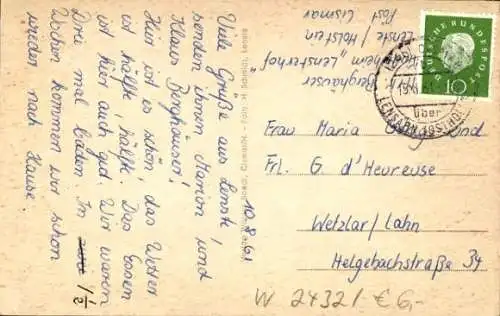 10.8.61
Viele Grüße aus Lenste
senden ihnen Marion und
Klaus Berghäuser!
Hier ist es schön, das Wetter
ist hälfte, hälfte. Das Essen
ist hier auch gut. Wir waren
Drei mal baden. In 1 1/2
Wochen kommen wir schon
wieder nach Hause.
Berghäuser
heim „Lensterhof"
Lenste / Holstein
Post Cismar
DEUTSCHE BUNDESPOST
10
über
LENSAHN (OSTHOLST
Frau Maria
Frl. G. d'Heureuse
Wetzlar/Lahn
Helgebachstraße 34
W 24321 € 6,-